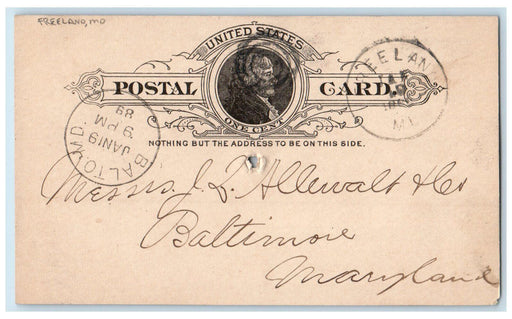 FREELAND, MD
UNITED STATES
POSTAL CARD.
ONE CENT
NOTHING BUT THE ADDRESS TO BE ON THIS SIDE.
BALTO. MD
JAN 19
9 PM
89
Messrs. J. Q. Allewalt & Co
Baltimore
Maryland